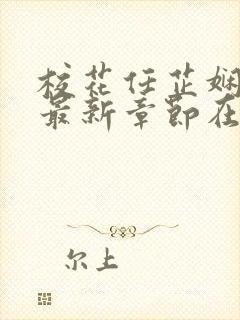 校花任芷娴
最新章节在
尔上